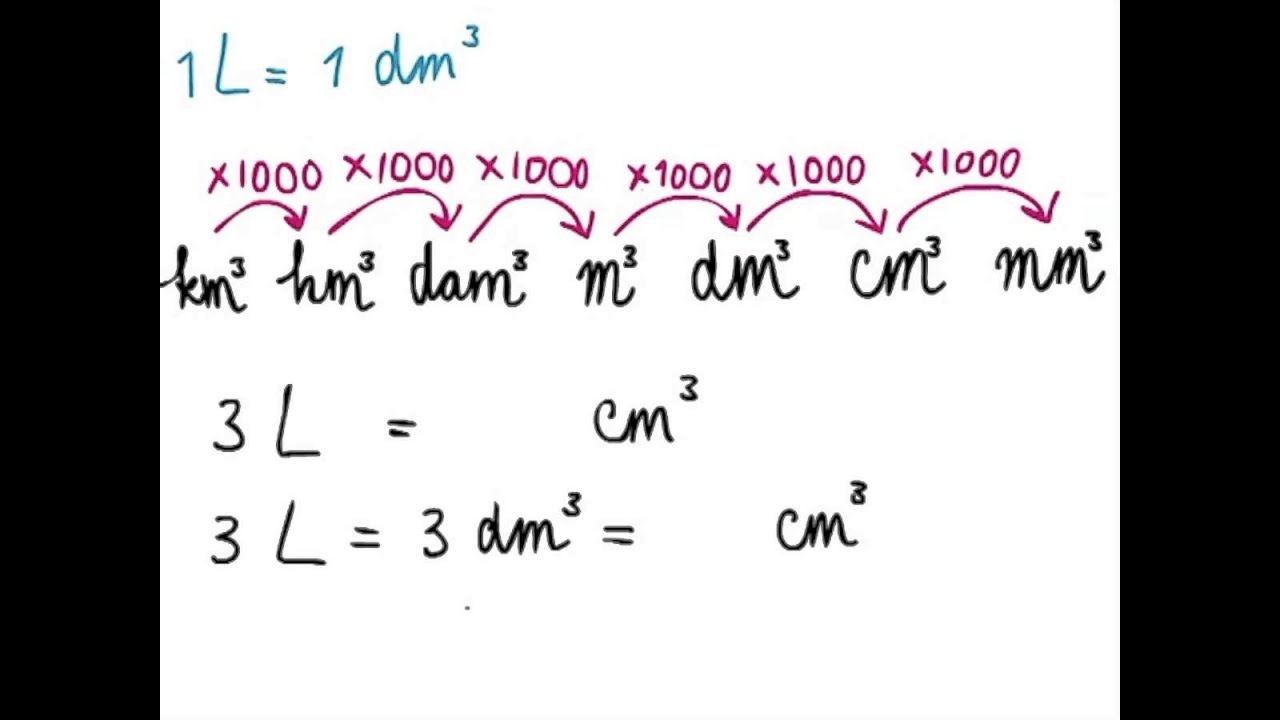 1 L = 1 dm³
×1000 ×1000 ×1000 ×1000 ×1000 ×1000
km³ hm³ dam³ m³ dm³ cm³ mm³
3 L = cm³
3 L = 3 dm³ = cm³